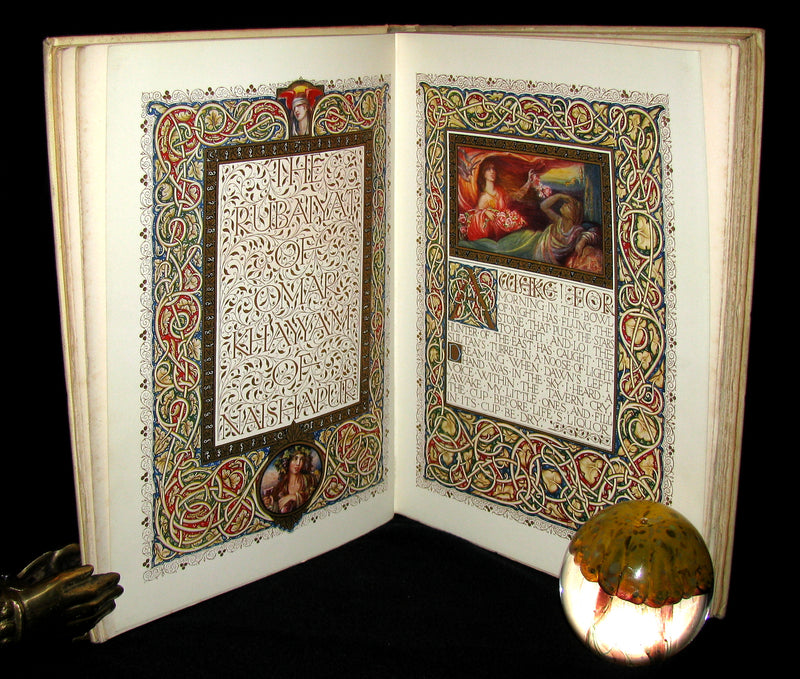 THE
RUBAIYAT
OF
OMAR
KHAYYAM
OF
NAISHAPUR
AWAKE! FOR
MORNING IN THE BOWL
OF NIGHT HAS FLUNG THE
STONE THAT PUTS THE STARS
TO FLIGHT: AND LO! THE
OF THE EAST HAS CAUGHT THE
TURRET IN A NOOSE OF LIGHT
DREAMING WHEN DAWN'S LEFT
HAND WAS IN THE SKY I HEARD
A VOICE WITHIN THE TAVERN CRY
AWAKE MY LITTLE ONES AND FILL
THE CUP BEFORE LIFE'S LIQUOR
IN ITS CUP BE DRY